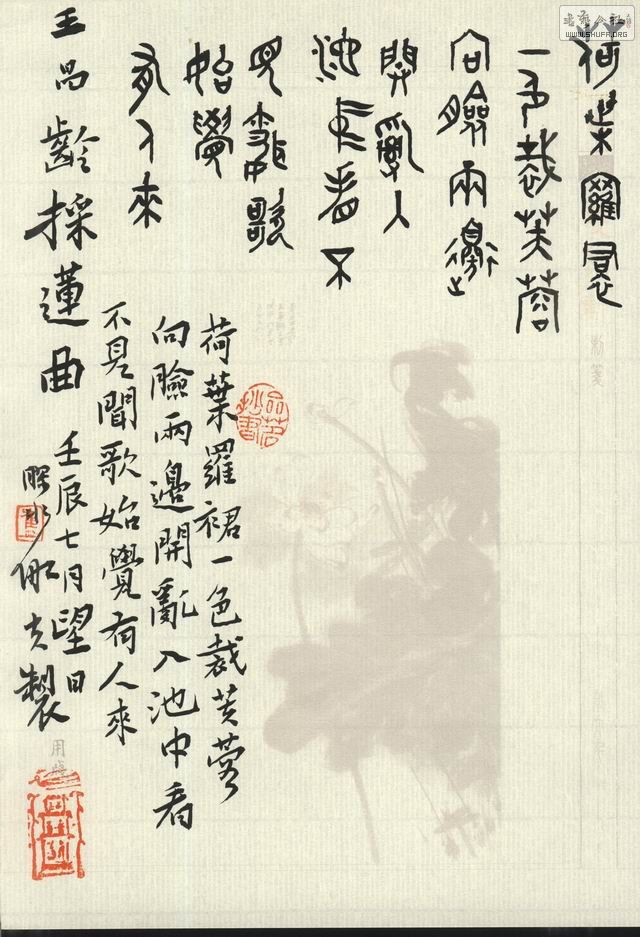 WWW.SHUFA.ORG
荷葉羅裙
一色裁芙蓉
向臉兩邊
開亂入
池中看不
見聞歌
始覺
有人來
荷葉羅裙一色裁芙蓉
向臉兩邊開亂入池中看
不見聞歌始覺有人來
王昌齡採蓮曲 壬辰七月望日
製
品茗抄書